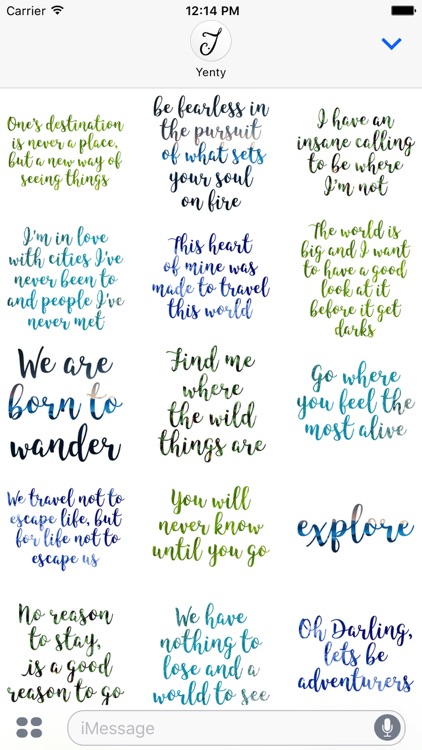 Carrier 12:14 PM
J
Yenty
One's destination
is never a place,
but a new way of
seeing things
be fearless in
the pursuit
of what sets
your soul
on fire
I have an
insane calling
to be where
I'm not
I'm in love
with cities I've
never been to
and people I've
never met
This heart
of mine was
made to travel
this world
The world is
big and I want
to have a good
look at it
before it get
darks
We are
born to
wander
Find me
where
the wild
things are
Go where
you feel the
most alive
We travel not to
escape life, but
for life not to
escape us
You will
never know
until you go
explore
No reason
to stay,
is a good
reason to go
We have
nothing to
lose and a
world to see
Oh Darling,
lets be
adventurers
iMessage